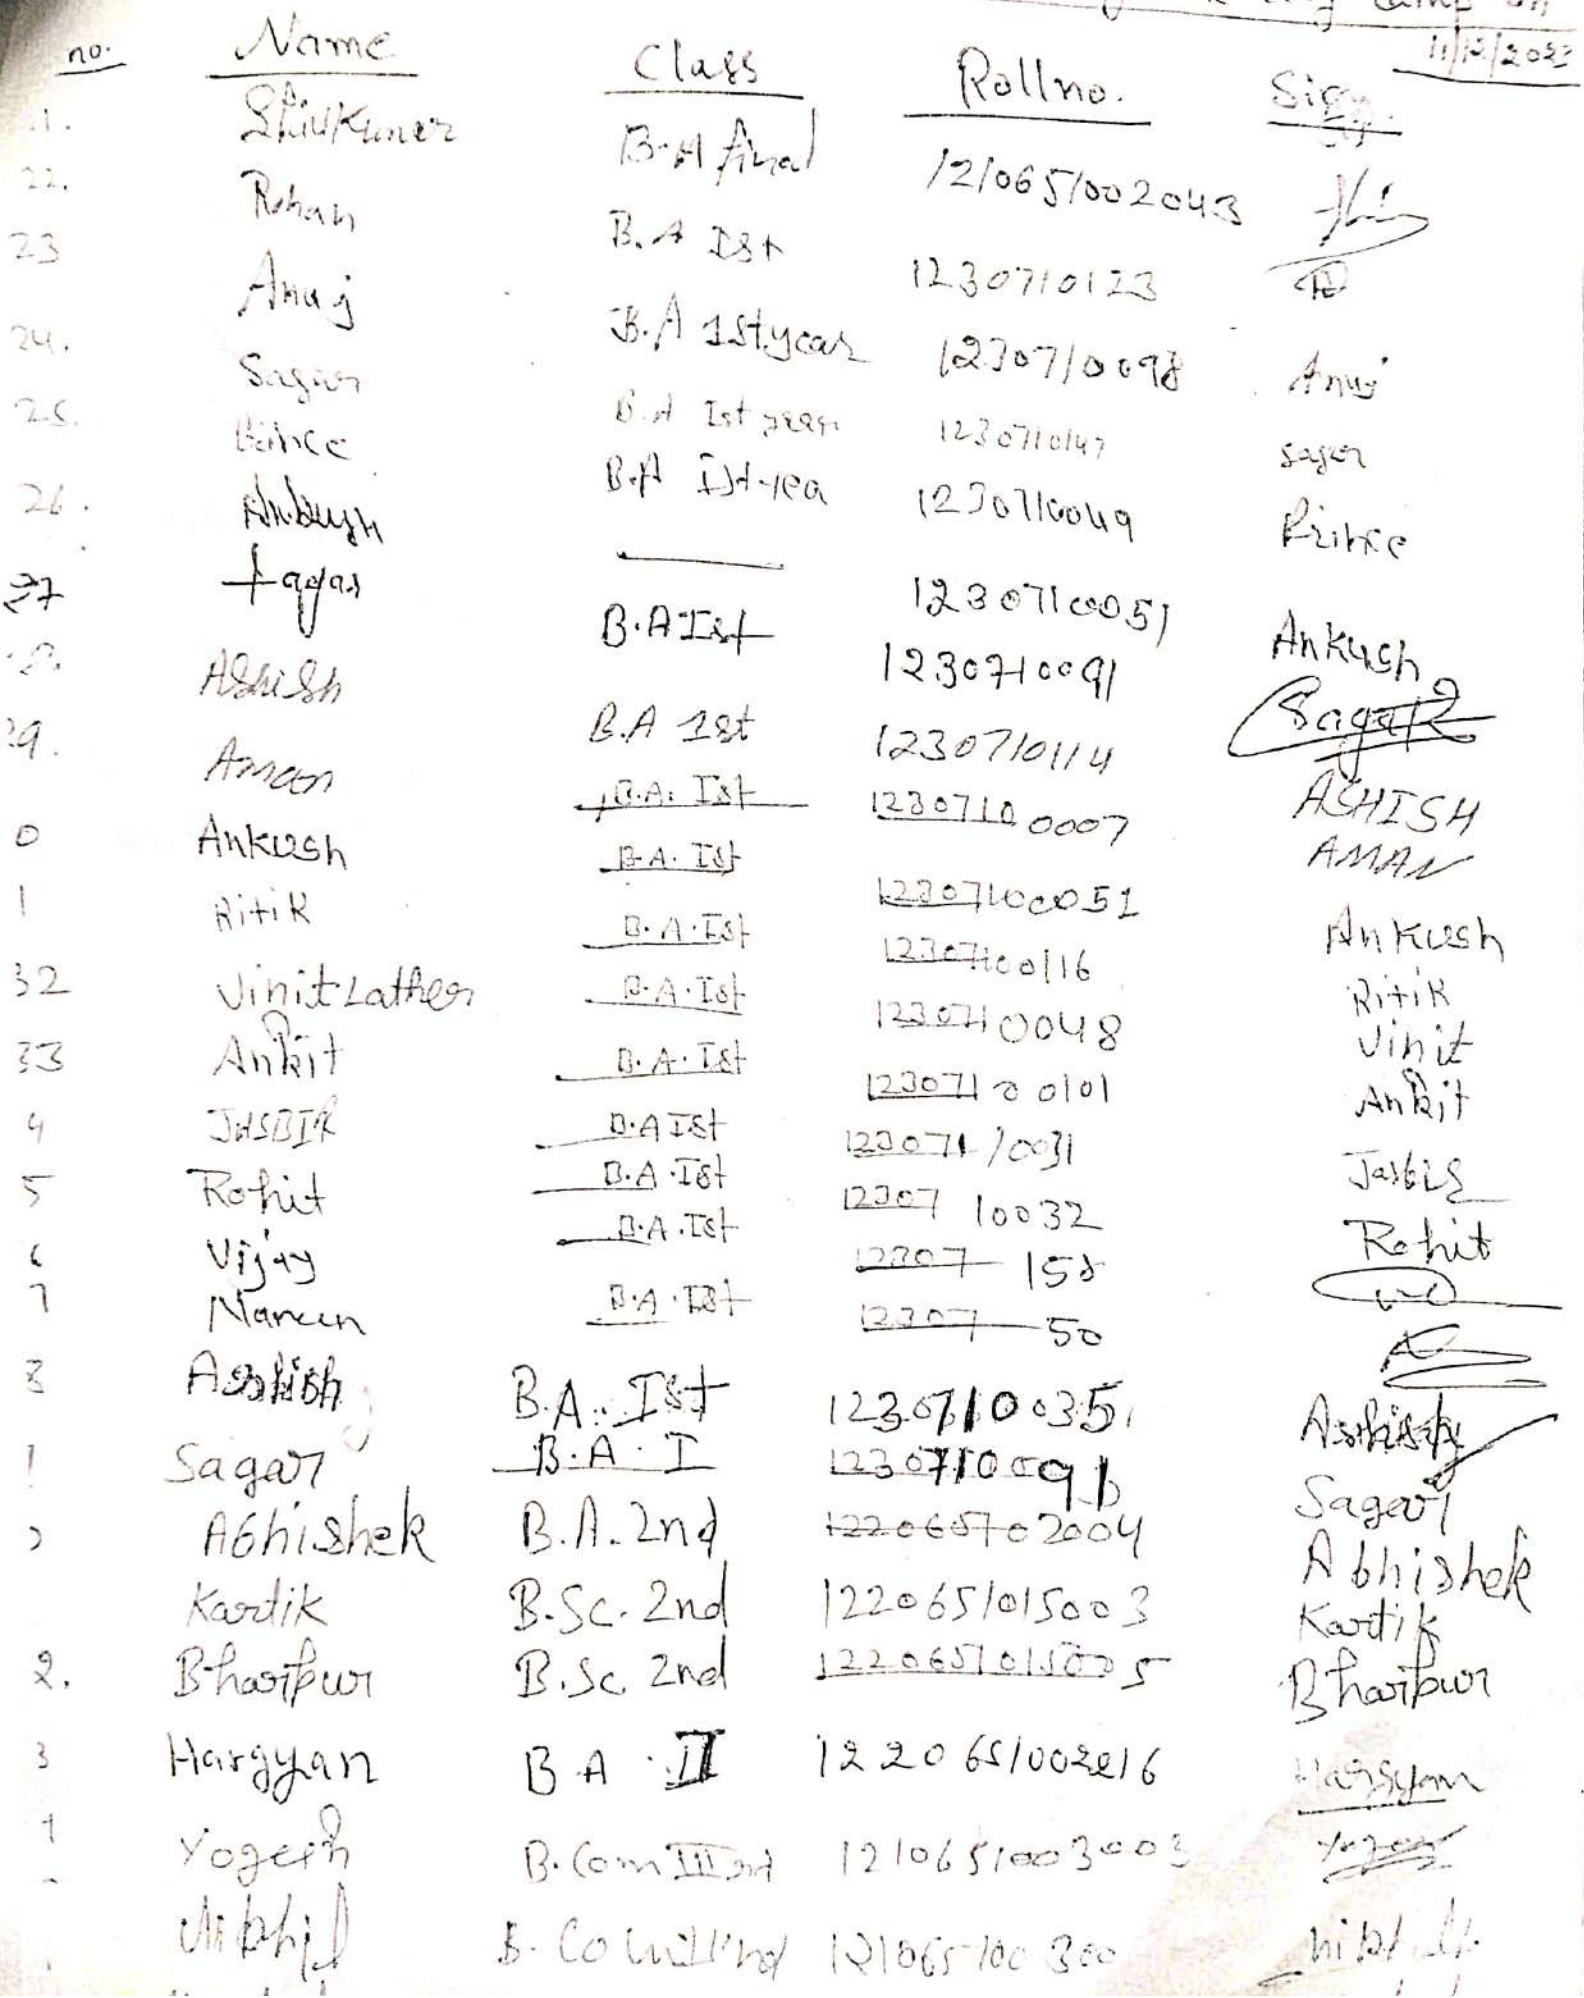 camp on
11/12/2023
no. Name Class Rollno. Sign.
1. Shivkumar B.A final 121065/002043
22. Rohan B.A Ist 1230710123
23 Anuj B.A 1st year 1230710098 Anuj
24. Sagar B.A Ist year 1230710147 sagar
25. Prince B.A Ist yea 1230710049 Prince
26. Ankush 1230710051 Ankush
27 Sagar B.A Ist 1230710091 Sagar
8. Ashish B.A 1st 1230710114 ASHISH
29. Aman B.A. Ist 1230710 0007 AMAN
0 Ankush B.A. Ist 12307100051 Ankush
1 Ritik B.A. Ist 12307100116 Ritik
32 Vinit Lather B.A. Ist 1230710048 Vinit
33 Ankit B.A. Ist 123071 0 0101 Ankit
4 JASBIR B.A Ist 123071 10031 Jasbir
5 Rohit B.A. Ist 12307 10032 Rohit
6 Vijay B.A. Ist 12307 158
7 Naveen B.A. Ist 12307 50
8 Ashish B.A. Ist 1230710035 Ashish
Sagar B.A. I 1230710091 Sagar
Abhishek B.A. 2nd 122065702004 Abhishek
Kartik B.Sc. 2nd 122065/015003 Kartik
2. Bharpur B.Sc. 2nd 122065/015005 Bharpur
3 Hargyan B A . II 122065/002216 Hargyan
Yogesh B.Com III 121065/003003 Yogesh
Nikhil B. Com 121065/00 300 nikhil